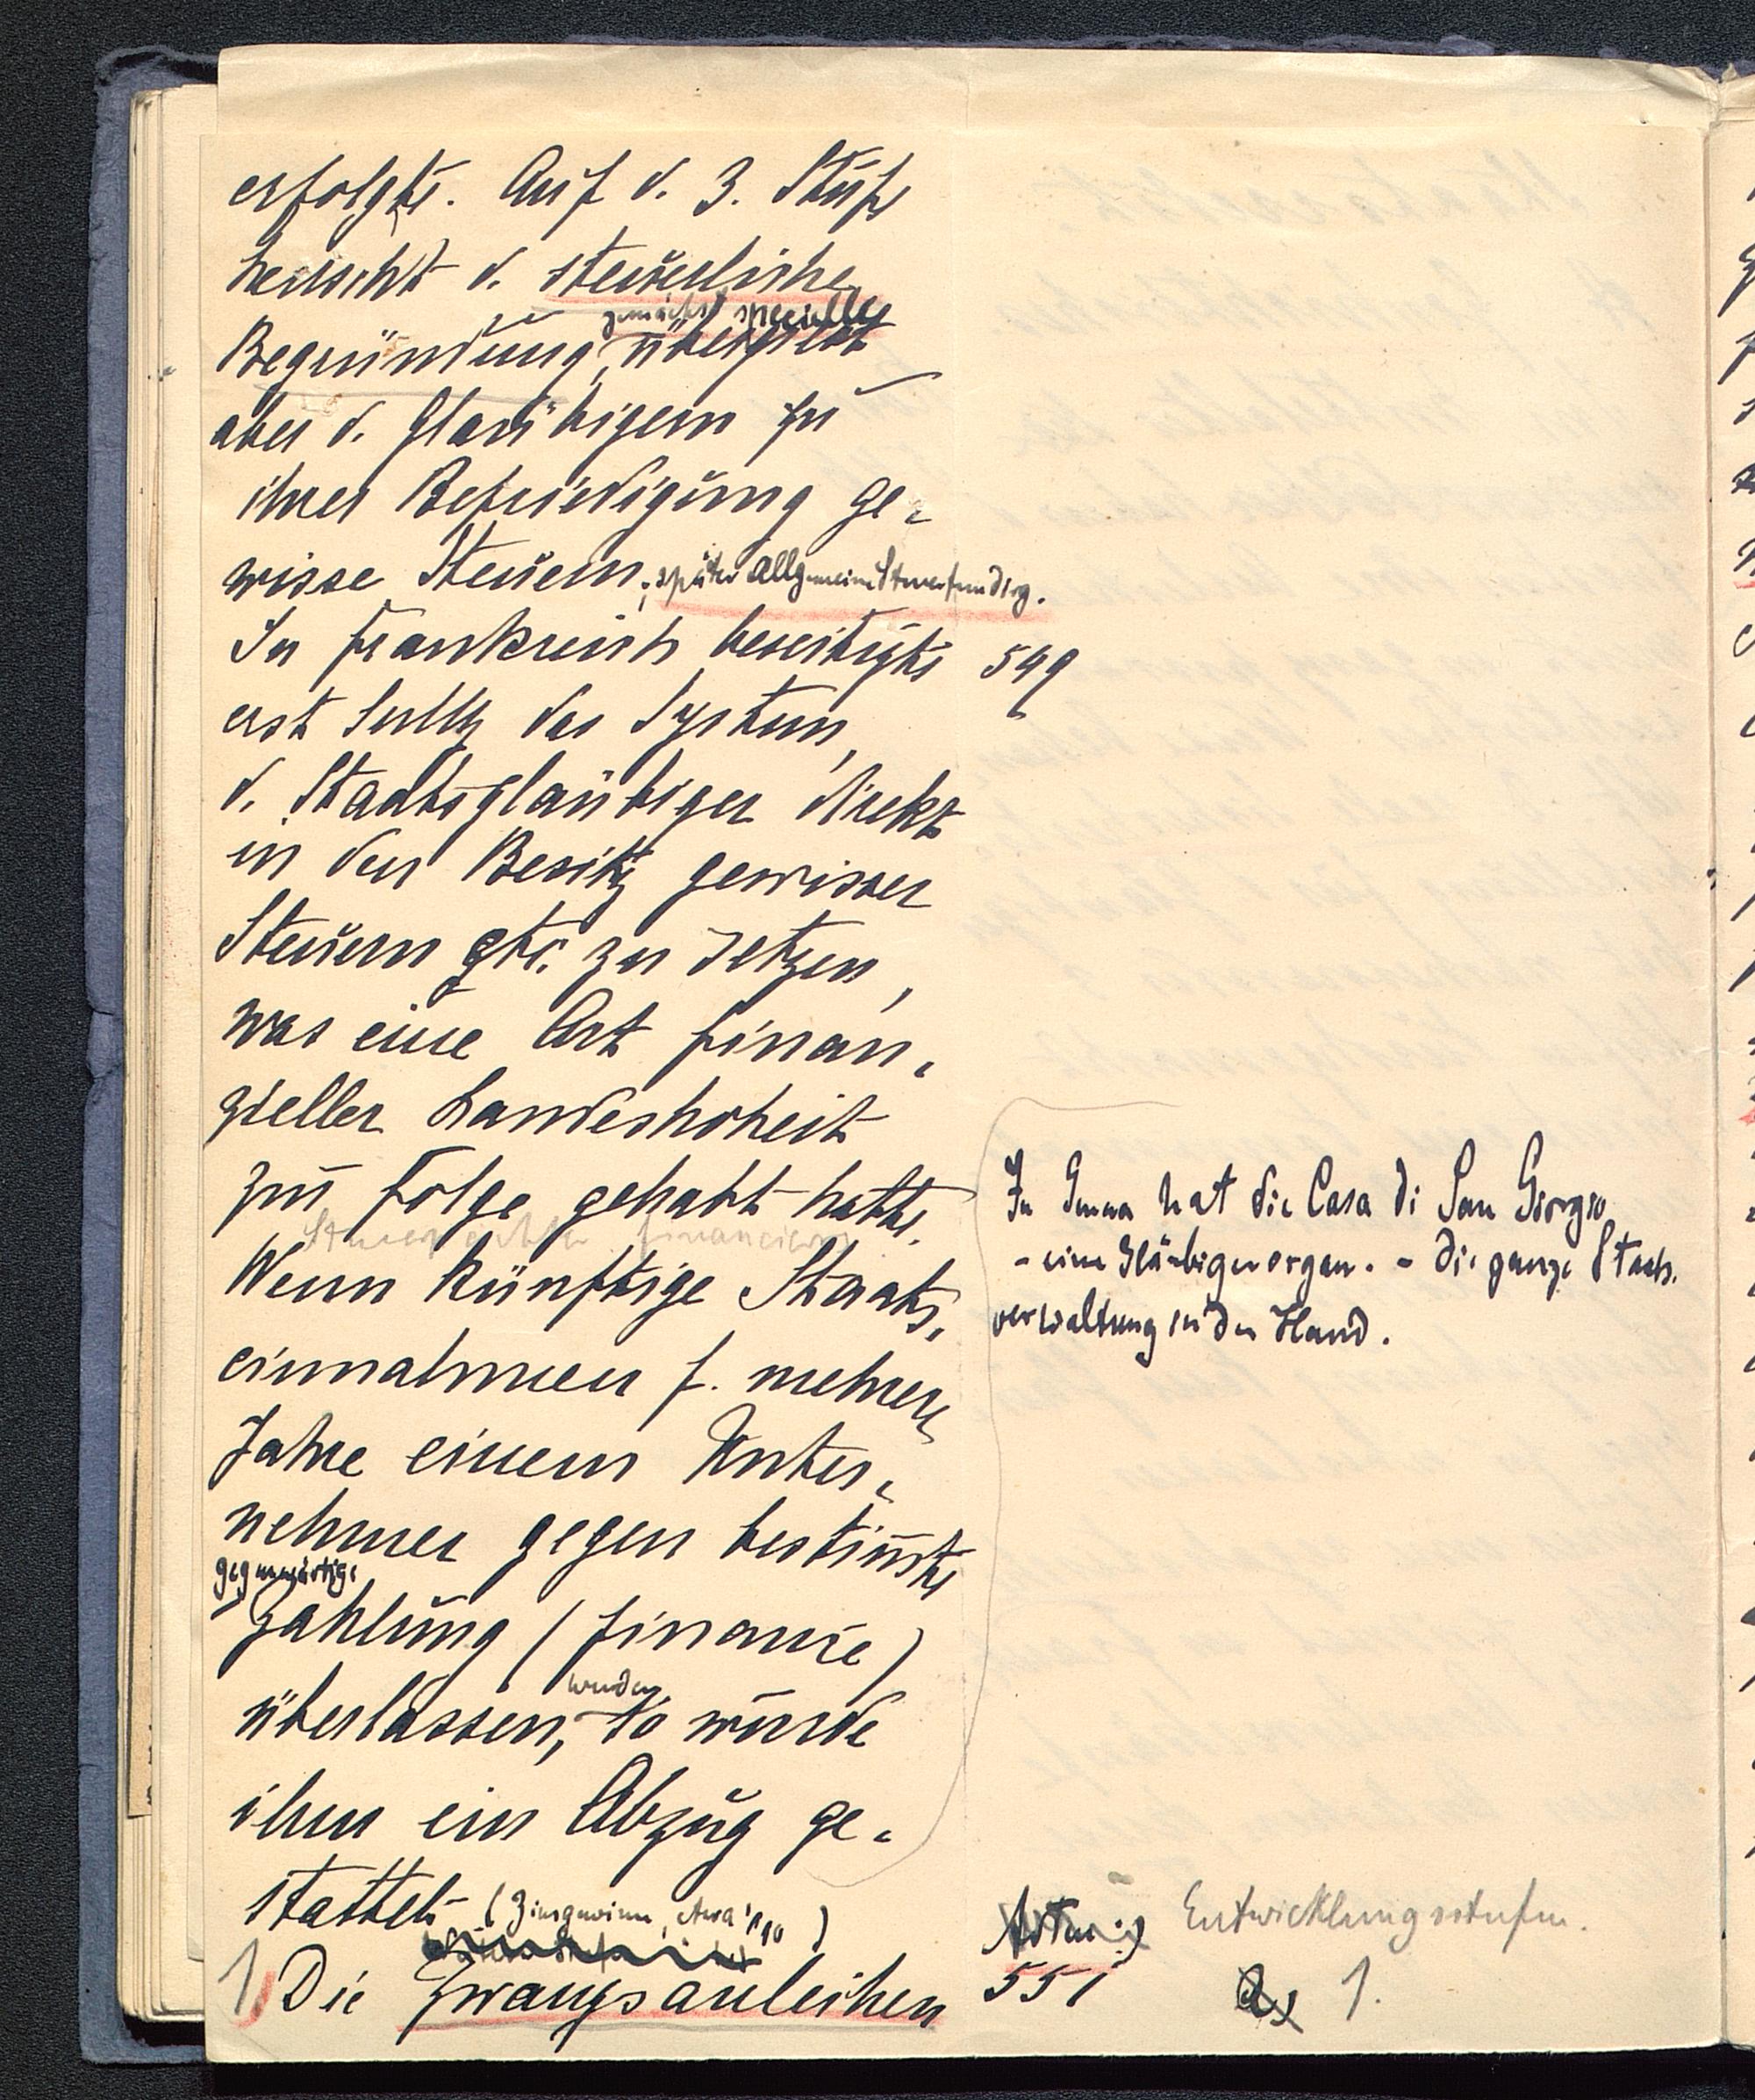 erfolgte. Auf d. 3. Stufe
herrscht d. steuerliche
zunächst specielle
Begründung, übergiebt
aber d. Gläubigern zu
ihrer Befriedigung ge-
wisse Steuern; später allgemeine Steuerfundirg.
In Frankreich beseitigte 549
erst Sully das System,
d. Staatsgläubiger direkt
in den Besitz gewisser
Steuern etc. zu setzen,
was eine Art finan-
zieller Landeshoheit
zur Folge gehabt hatte.
In Genua hat die Casa di San Giorgio
- eine Gläubigerorgan. - die ganze Staats-
verwaltung in der Hand.
Steuerpächter financiers
Wenn künftige Staats-
einnahmen f. mehrere
Jahre einem Unter-
nehmer gegen bestimmte
gegenwärtige
Zahlung (finance)
wurden
überlassen, so wurde
ihm ein Abzug ge-
stattet (Zinsgewinn, etwa 1/10)
Entwicklungsstufen.
1) Die Zwangsanleihen 551 1.